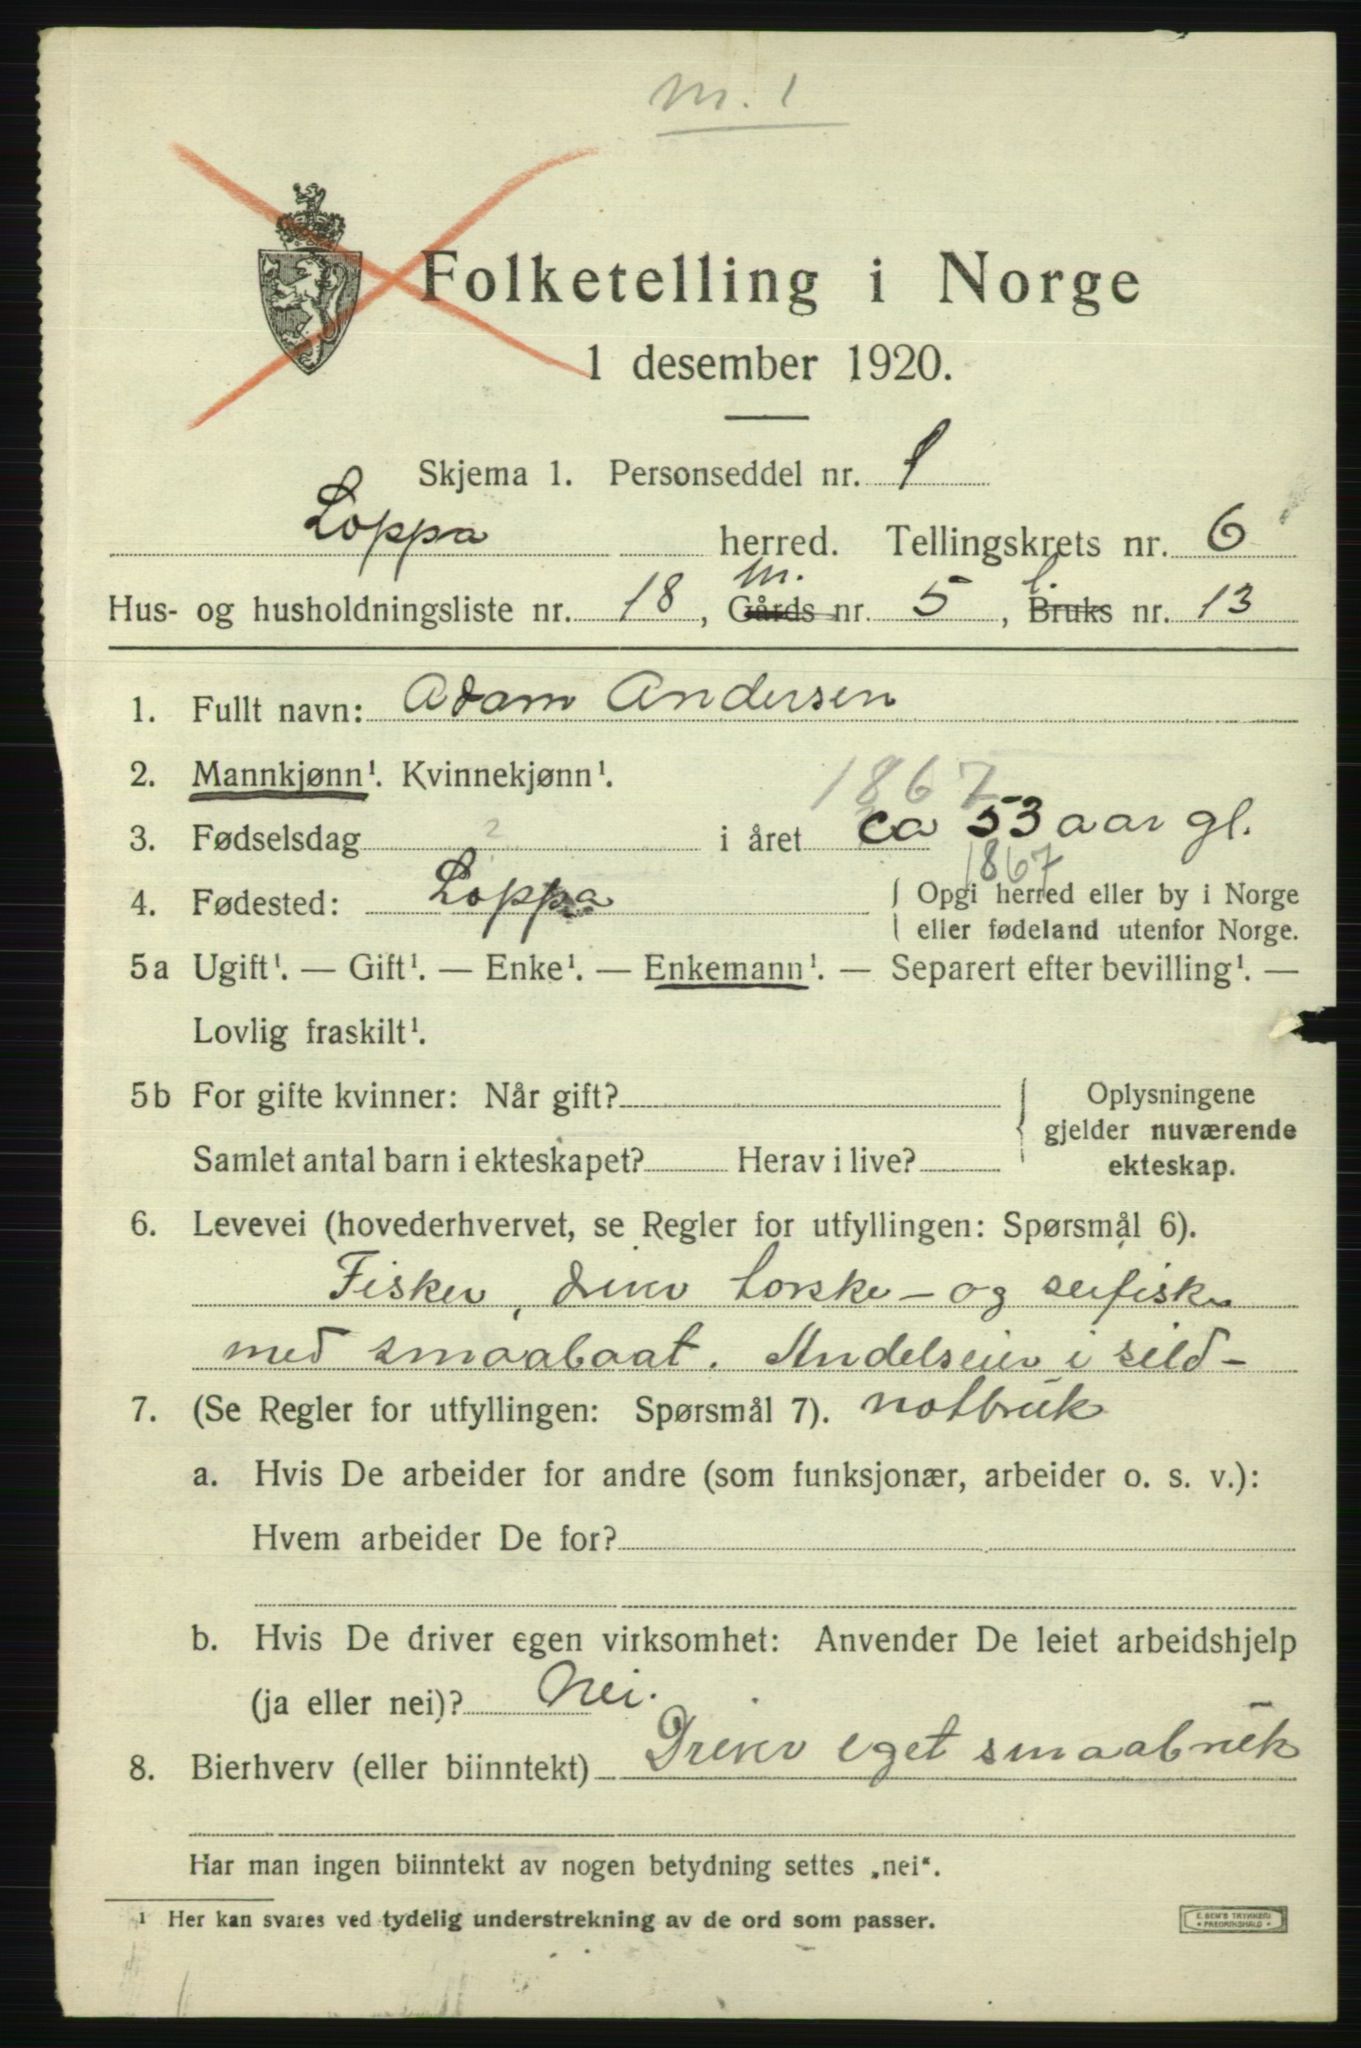 m. 1
Folketelling i Norge
1 desember 1920.
Skjema 1. Personseddel nr. 1
Loppa herred. Tellingskrets nr. 6
m. l.
Hus- og husholdningsliste nr. 18, Gårds nr. 5, Bruks nr. 13
1. Fullt navn: Adam Andersen
2. Mannkjønn¹. Kvinnekjønn¹.
1867
3. Fødselsdag ? i året ca 53 aar gl.
1867
4. Fødested: Loppa { Opgi herred eller by i Norge
eller fødeland utenfor Norge.
5a Ugift¹. — Gift¹. — Enke¹. — Enkemann¹. — Separert efter bevilling¹. —
Lovlig fraskilt¹.
5b For gifte kvinner: Når gift? { Oplysningene
gjelder nuværende
Samlet antal barn i ekteskapet? Herav i live? ekteskap.
6. Levevei (hovederhvervet, se Regler for utfyllingen: Spørsmål 6).
Fisker, driver torske- og seifiske
med smaabaat. Andelseier i sild-
7. (Se Regler for utfyllingen: Spørsmål 7). notbruk
a. Hvis De arbeider for andre (som funksjonær, arbeider o. s. v.):
Hvem arbeider De for?
b. Hvis De driver egen virksomhet: Anvender De leiet arbeidshjelp
(ja eller nei)? Nei.
8. Bierhverv (eller biinntekt) Driver eget smaabruk
Har man ingen biinntekt av nogen betydning settes „nei“.
¹ Her kan svares ved tydelig understrekning av de ord som passer.
E. SEM'S TRYKKERI
FREDRIKSHALD